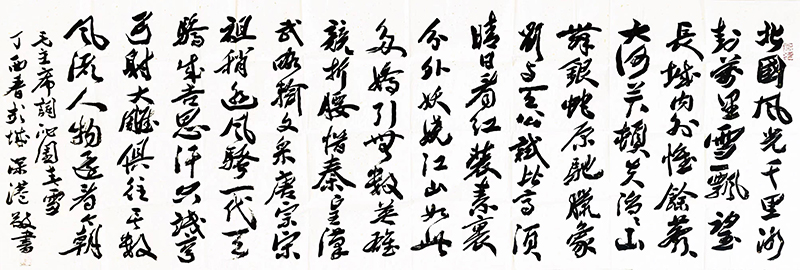 北國風光千里冰
封萬里雪飄望
長城內外惟餘莽々
大河上下頓失滔々山
舞銀蛇原馳臘象
欲与天公試比高須
晴日看紅裝素裹
分外妖嬈江山如此
多嬌引無數英雄
競折腰惜秦皇漢
武略輸文采唐宗宋
祖稍遜風騷一代天
驕成吉思汗只識彎
弓射大雕俱往矣數
風流人物還看今朝
毛主席詞沁園春雪
丁酉春於城深港敬書